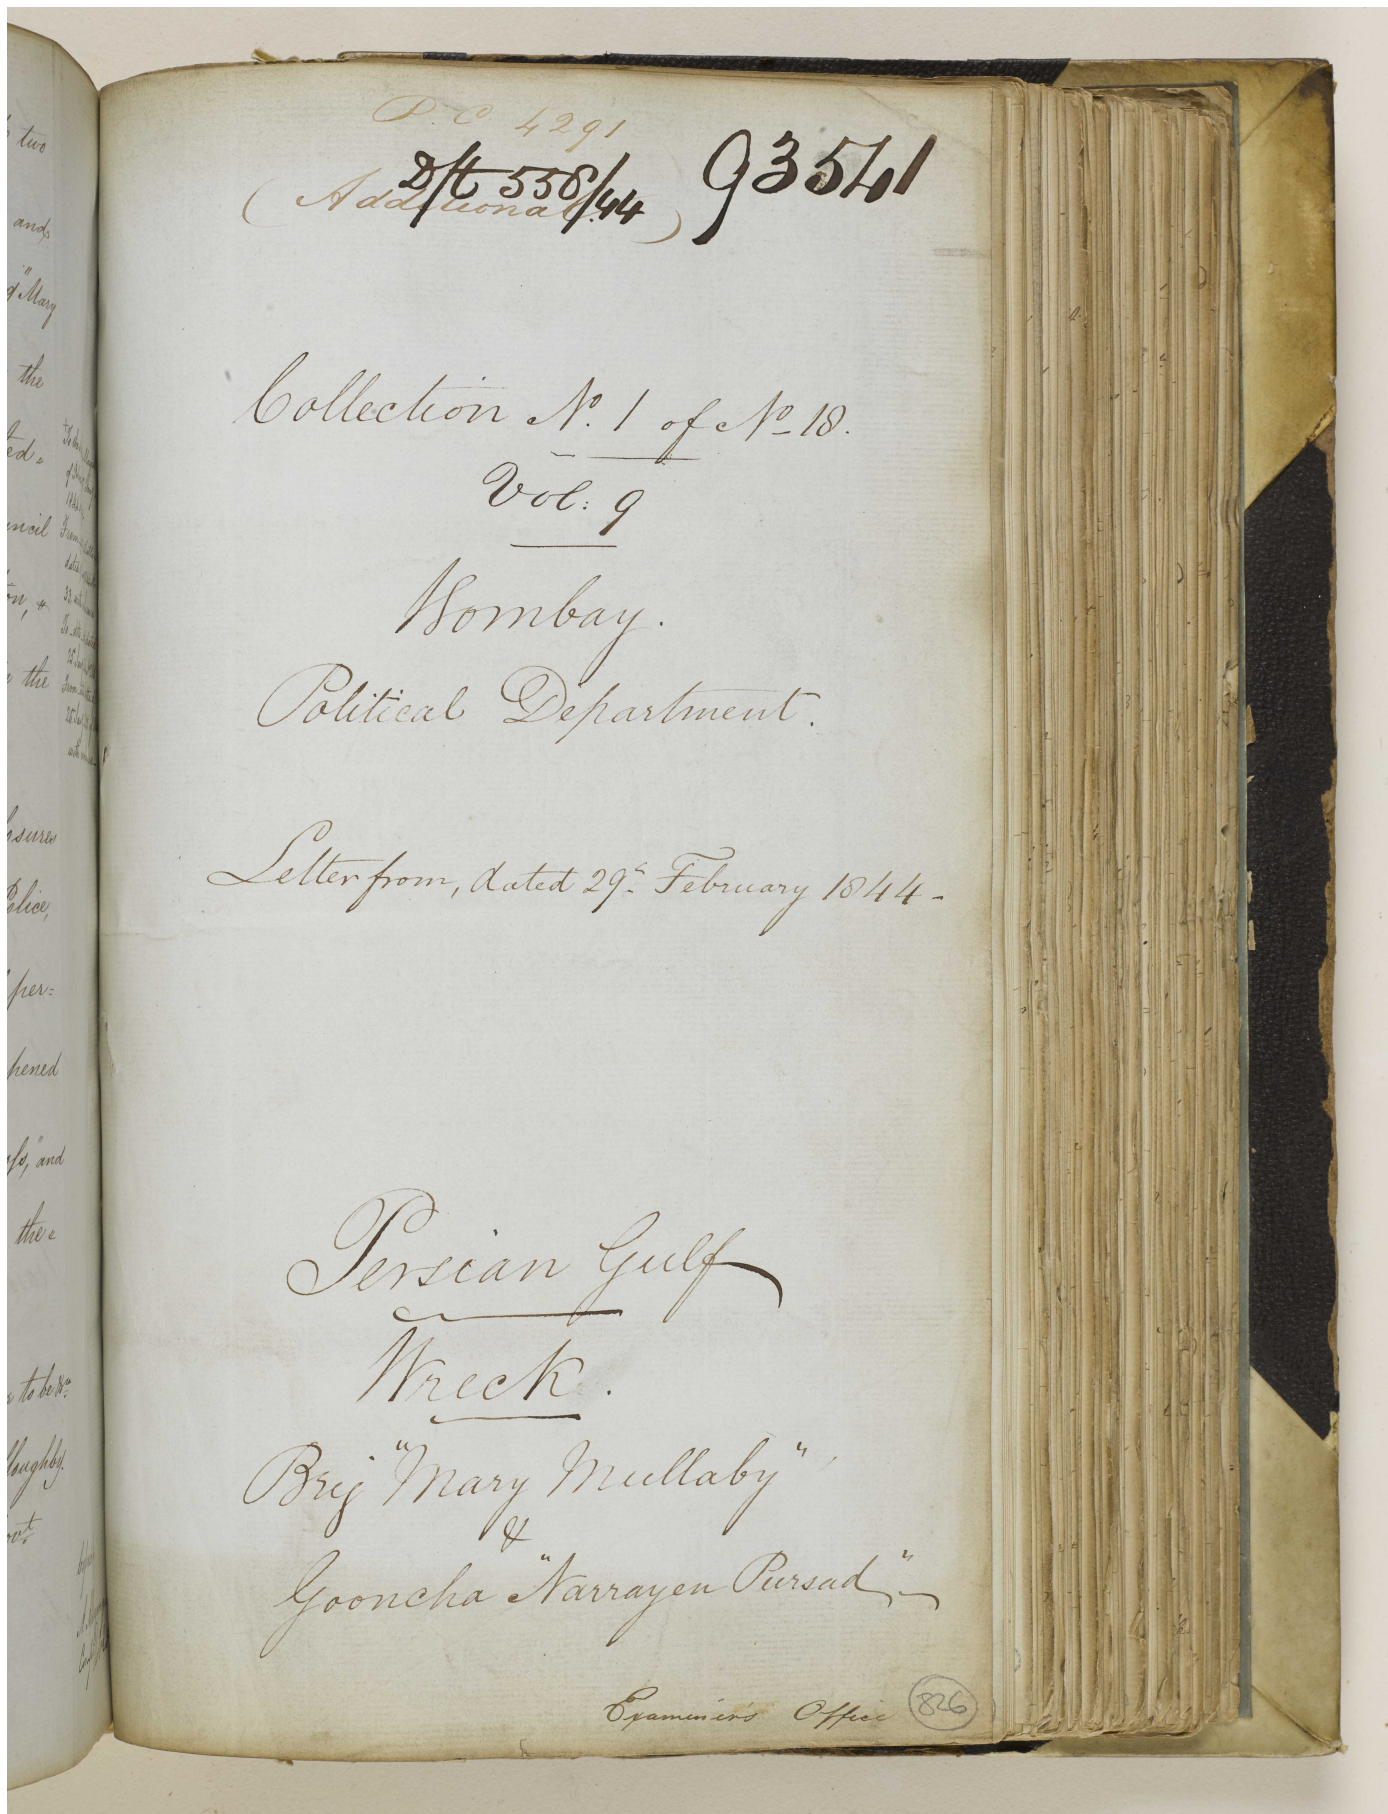 two
and
"Mary
the
ed =
uncil
on, &
the
sures
Police,
per=
pened
and
the =
to be
lloughby.
P. C 4291
Dft 558/44
(Additional)
93541
Collection No. 1 of No 18.
Vol: 9
Bombay.
Political Department.
Letter from, dated 29th February 1844 -
Persian Gulf
Wreck.
Brig "Mary Mullaby"
&
Gooncha "Narrayen Pursad"
Examiner's Office
826